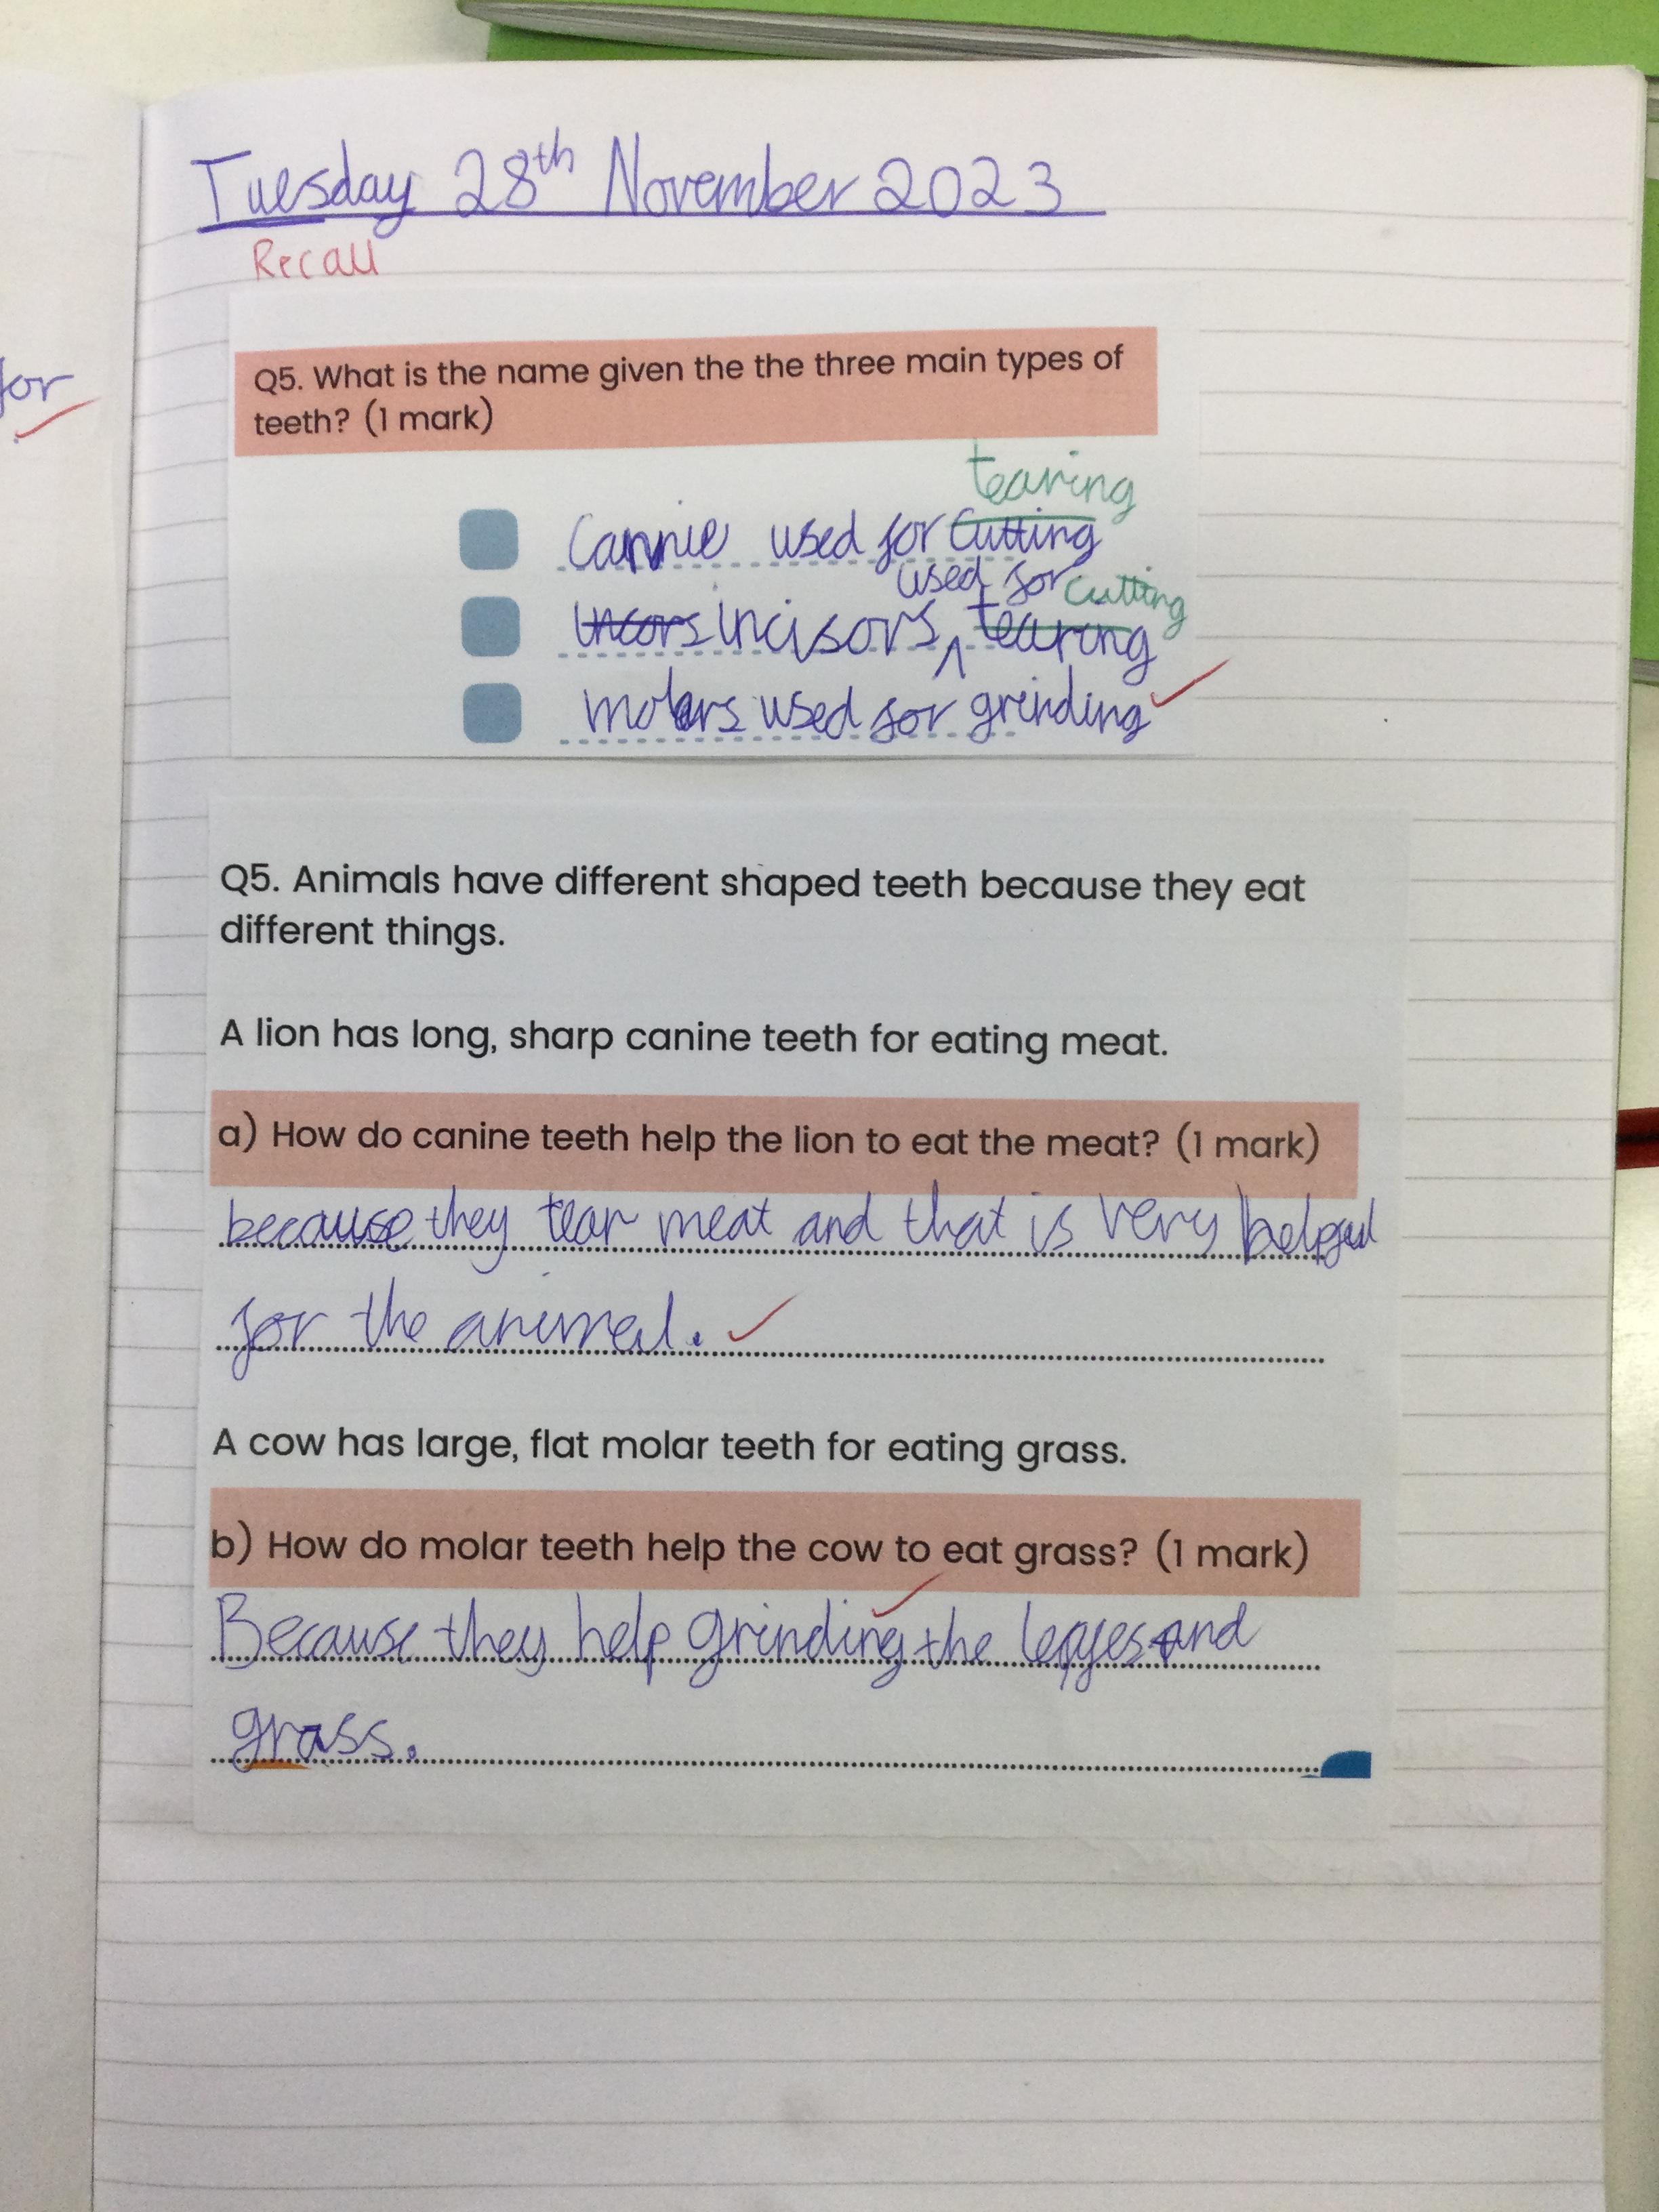 Tuesday 28th November 2023
Recall
for
Q5. What is the name given the the three main types of
teeth? (1 mark)
tearing
Cannie used for cutting
used for cutting
incisors, tearing
molars used for grinding
Q5. Animals have different shaped teeth because they eat
different things.
A lion has long, sharp canine teeth for eating meat.
a) How do canine teeth help the lion to eat the meat? (1 mark)
because they tear meat and that is very
for the animal.
A cow has large, flat molar teeth for eating grass.
b) How do molar teeth help the cow to eat grass? (1 mark)
Because they help grinding the and
grass.